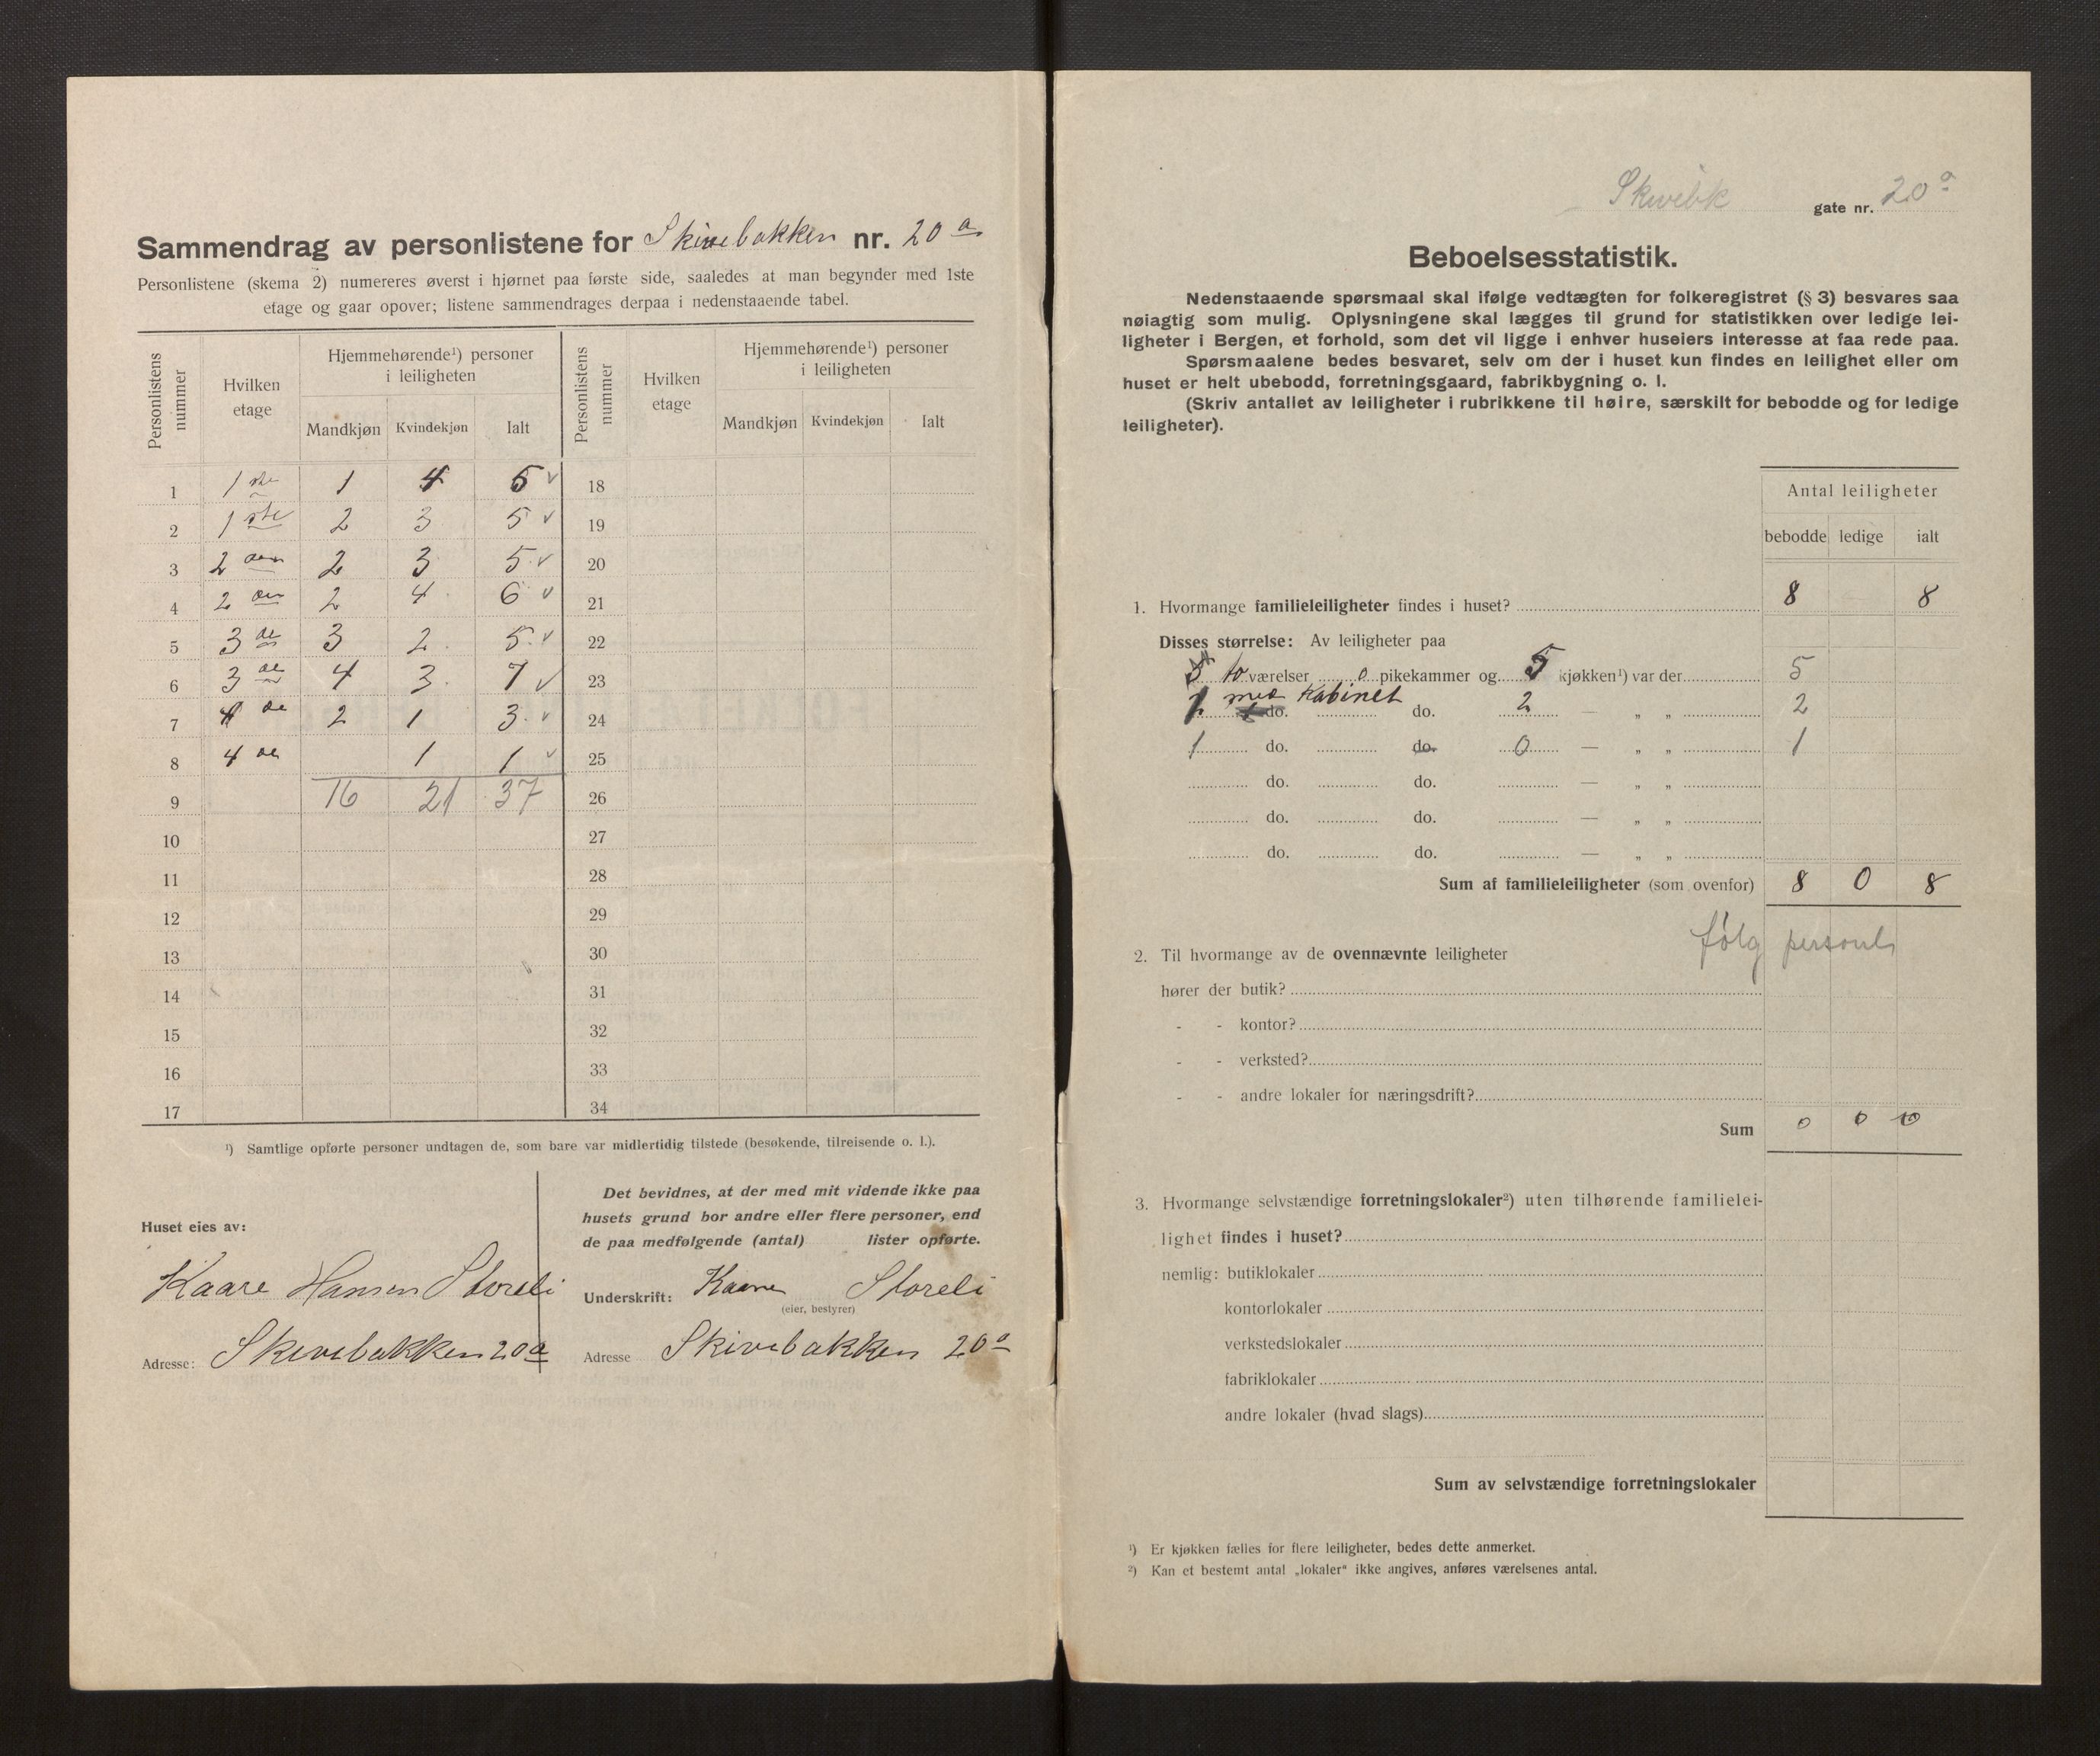 Sammendrag av personlistene for Skivebakken nr. 20 a
Personlistene (skema 2) numereres øverst i hjørnet paa første side, saaledes at man begynder med 1ste
etage og gaar opover; listene sammendrages derpaa i nedenstaaende tabel.
Personlistens nummer | Hvilken etage | Hjemmehørende¹) personer i leiligheten | Personlistens nummer | Hvilken etage | Hjemmehørende¹) personer i leiligheten
Mandkjøn Kvindekjøn Ialt Mandkjøn Kvindekjøn Ialt
1 1 ste 1 4 5 ✓ 18
2 1 ste 2 3 5 ✓ 19
3 2 den 2 3 5 ✓ 20
4 2 den 2 4 6 ✓ 21
5 3 de 3 2 5 ✓ 22
6 3 de 4 3 7 ✓ 23
7 4 de 2 1 3 ✓ 24
8 4 de 1 1 ✓ 25
9 16 21 37 26
10 27
11 28
12 29
13 30
14 31
15 32
16 33
17 34
¹) Samtlige opførte personer undtagen de, som bare var midlertidig tilstede (besøkende, tilreisende o. l.).
Huset eies av:
Kaare Hansen Storeli
Adresse: Skivebakken 20a
Det bevidnes, at der med mit vidende ikke paa
husets grund bor andre eller flere personer, end
de paa medfølgende (antal) lister opførte.
Underskrift: Kaare Storeli
(eier, bestyrer)
Adresse Skivebakken 20a
Skivebk gate nr. 20a
Beboelsesstatistik.
Nedenstaaende spørsmaal skal ifølge vedtægten for folkeregistret (§ 3) besvares saa
nøiagtig som mulig. Oplysningene skal lægges til grund for statistikken over ledige lei-
ligheter i Bergen, et forhold, som det vil ligge i enhver huseiers interesse at faa rede paa.
Spørsmaalene bedes besvaret, selv om der i huset kun findes en leilighet eller om
huset er helt ubebodd, forretningsgaard, fabrikbygning o. l.
(Skriv antallet av leiligheter i rubrikkene til høire, særskilt for bebodde og for ledige
leiligheter).
Antal leiligheter
bebodde ledige ialt
1. Hvormange familieleiligheter findes i huset? 8 8
Disses størrelse: Av leiligheter paa
5 to værelser 0 pikekammer og 5 kjøkken¹) var der 5
2 med Kabinet do. do. 2 — „ „ 2
1 do. do. 0 — „ „ 1
do. do. — „ „
do. do. — „ „
do. do. — „ „
Sum af familieleiligheter (som ovenfor) 8 0 8
2. Til hvormange av de ovennævnte leiligheter følg personl
hører der butik?
- - kontor?
- - verksted?
- - andre lokaler for næringsdrift?
Sum 0 0 0
3. Hvormange selvstændige forretningslokaler²) uten tilhørende familielei-
lighet findes i huset?
nemlig: butiklokaler
kontorlokaler
verkstedslokaler
fabriklokaler
andre lokaler (hvad slags)
Sum av selvstændige forretningslokaler
¹) Er kjøkken fælles for flere leiligheter, bedes dette anmerket.
²) Kan et bestemt antal „lokaler“ ikke angives, anføres værelsenes antal.